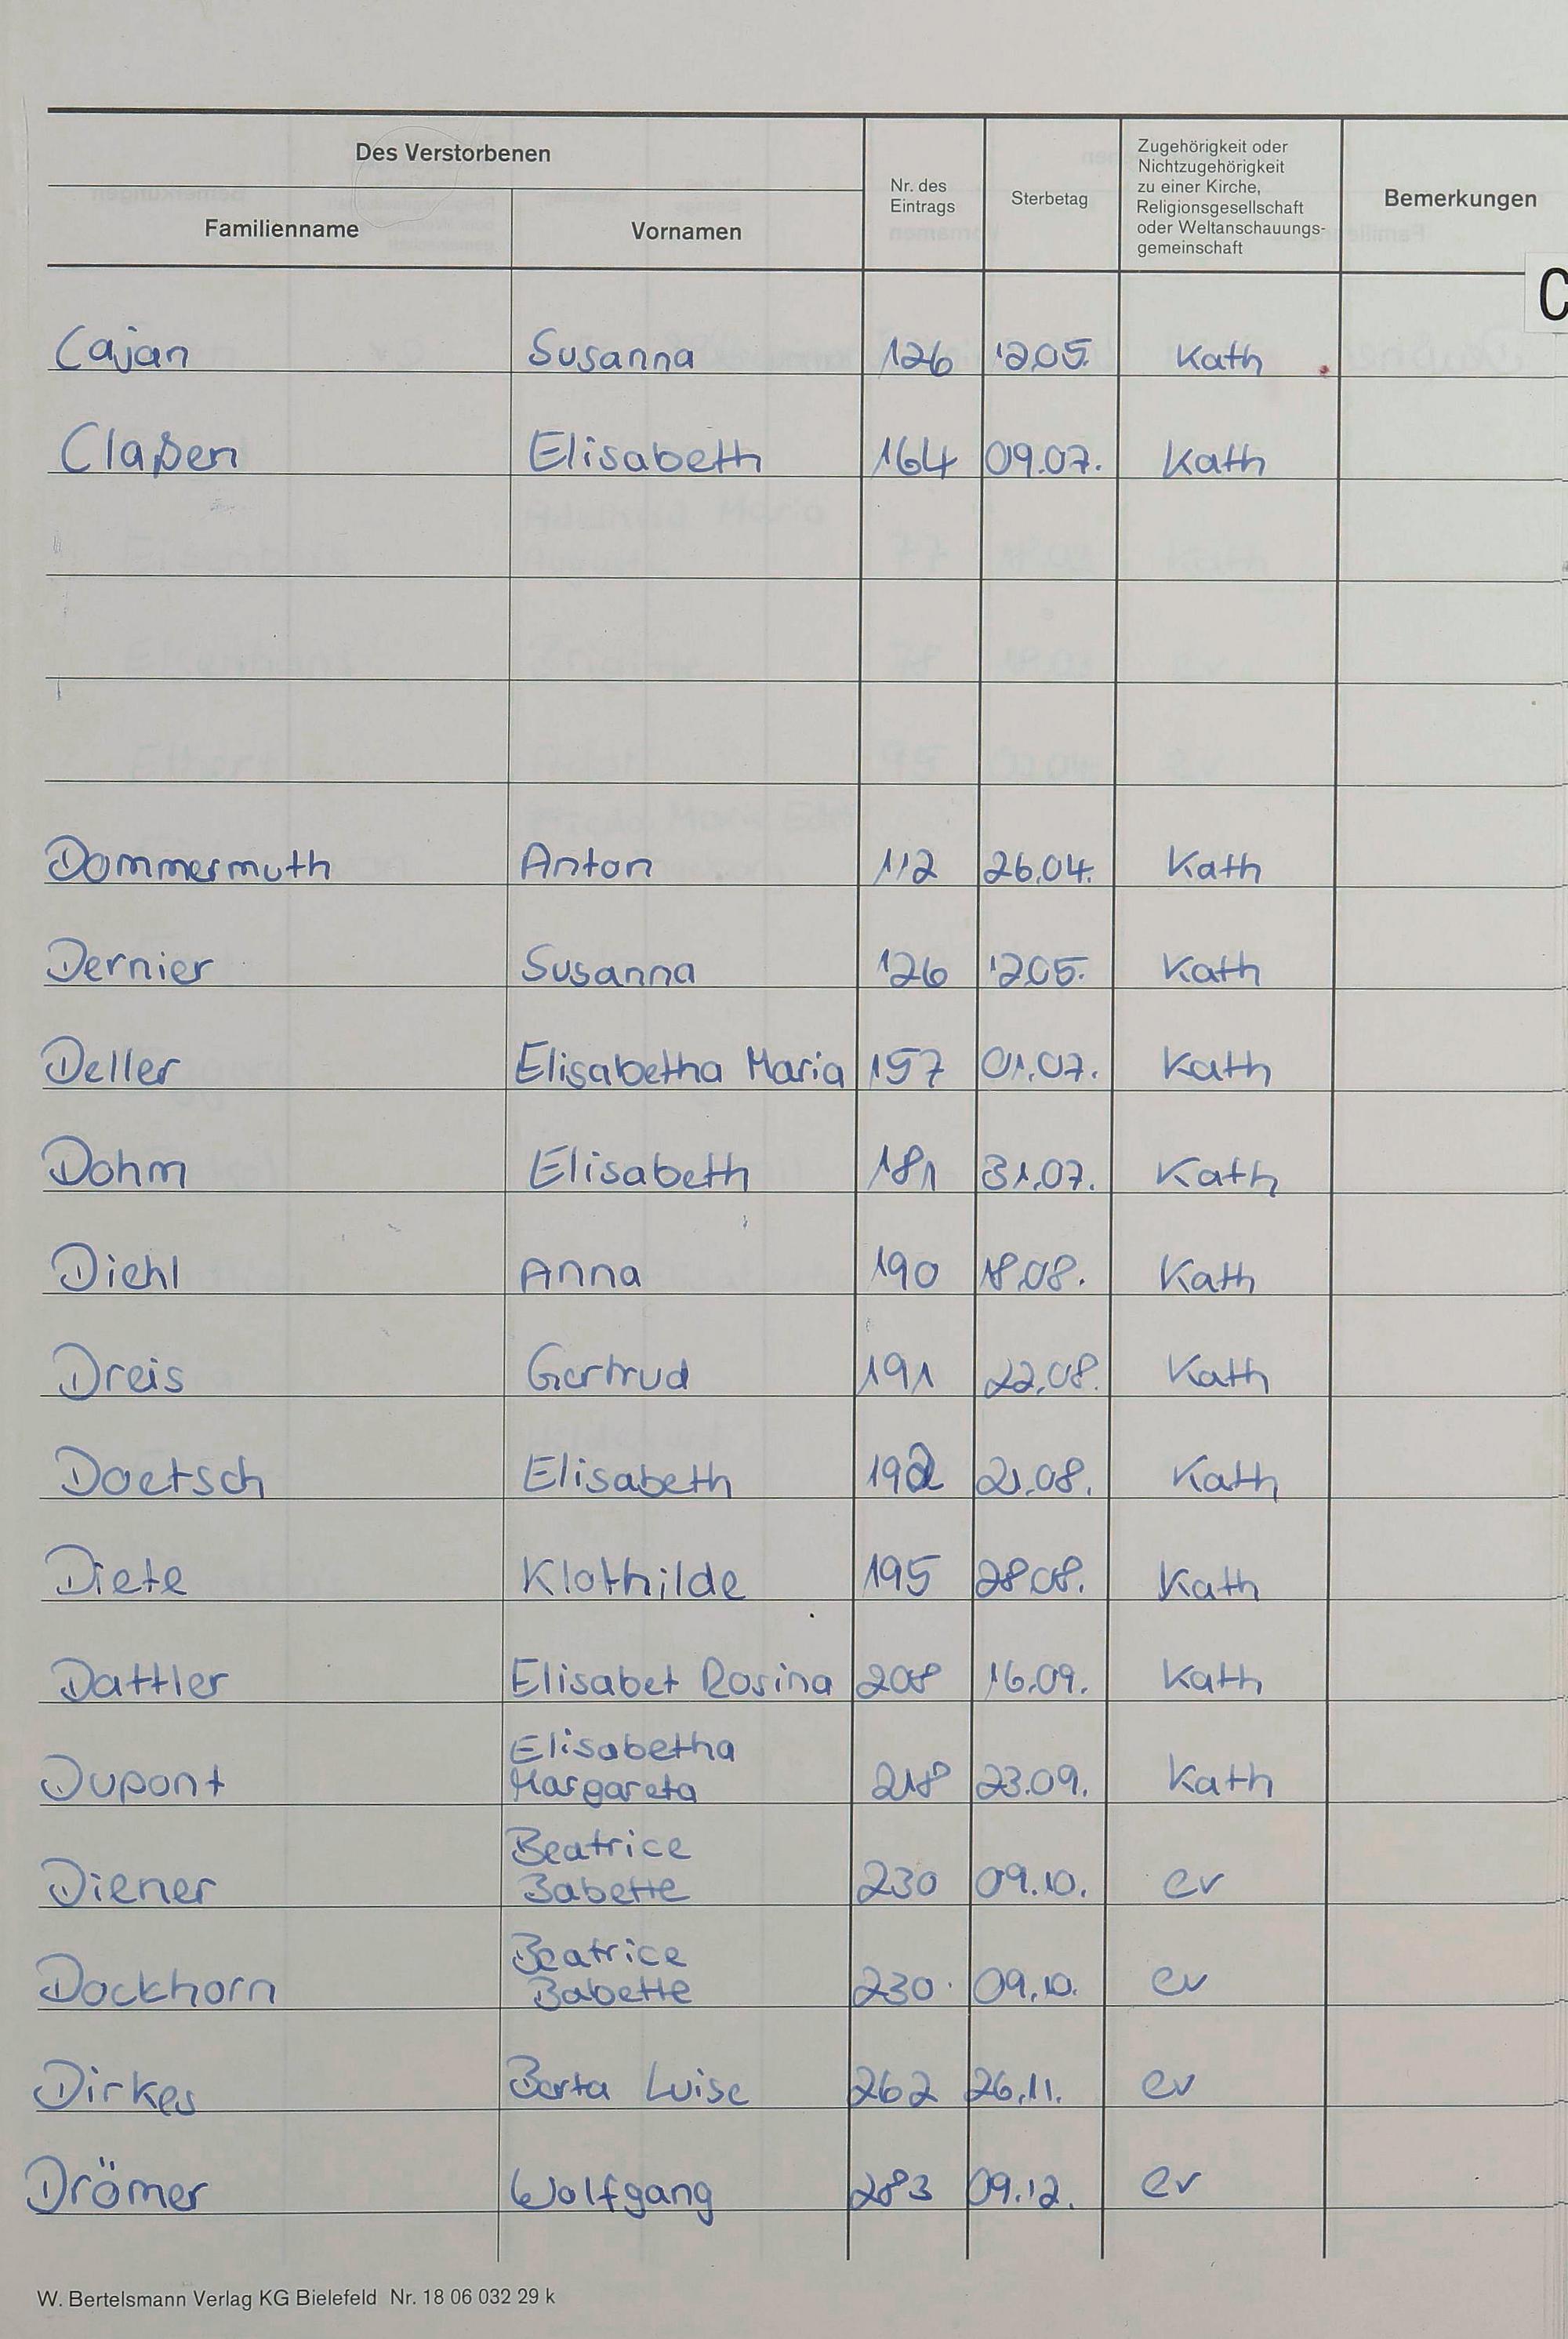 Des Verstorbenen
Familienname
Vornamen
Nr. des
Eintrags
Sterbetag
Zugehörigkeit oder
Nichtzugehörigkeit
zu einer Kirche,
Religionsgesellschaft
oder Weltanschauungs-
gemeinschaft
Bemerkungen
C
Cajan Susanna 126 12.05. Kath
Claßen Elisabeth 164 09.07. Kath
Dommermuth Anton 112 26.04. Kath
Dernier Susanna 126 12.05. Kath
Deller Elisabetha Maria 157 01.07. Kath
Dohm Elisabeth 181 31.07. Kath
Diehl Anna 190 18.08. Kath
Dreis Gertrud 191 22.08. Kath
Doetsch Elisabeth 192 21.08. Kath
Diete Klothilde 195 28.08. Kath
Dattler Elisabet Rosina 208 16.09. Kath
Elisabetha
Dupont Margareta 218 23.09. Kath
Beatrice
Diener Babette 230 09.10. ev
Beatrice
Dockhorn Babette 230 09.10. ev
Dirkes Berta Luise 262 26.11. ev
Drömer Wolfgang 283 09.12. ev
W. Bertelsmann Verlag KG Bielefeld Nr. 18 06 032 29 k